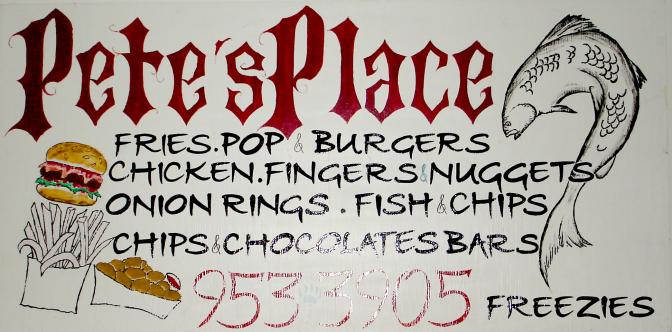 Pete's Place
FRIES.POP & BURGERS
CHICKEN.FINGERS & NUGGETS
ONION RINGS . FISH & CHIPS
CHIPS & CHOCOLATES BARS
953 3905 FREEZIES